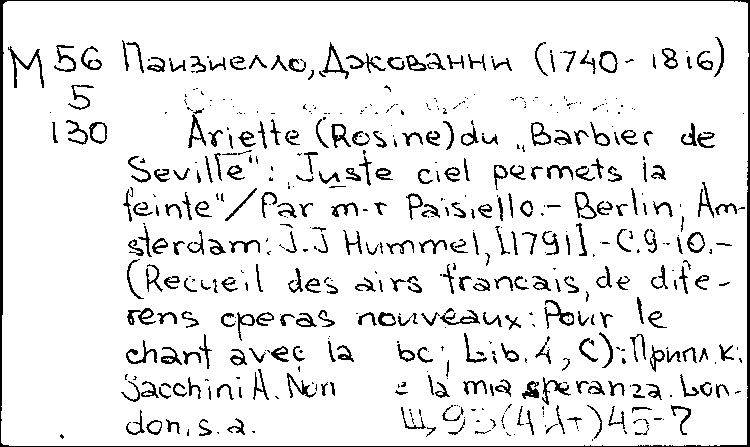 М 56 Паизиелло, Джованни (1740-1816)
5
130 Ariette (Rosine) du „Barbier de
Seville": „Juste ciel permets la
feinte"/Par m-r Paisiello.- Berlin; Am-
sterdam: J.J Hummel, [1791].-C.9-10.-
(Recueil des airs francais, de dife-
rens operas nouveaux: Pour le
chant avec la bc; Lib. 4, C): Припл. к:
Sacchini A. Non la mia speranza. Lon-
don, s.a.